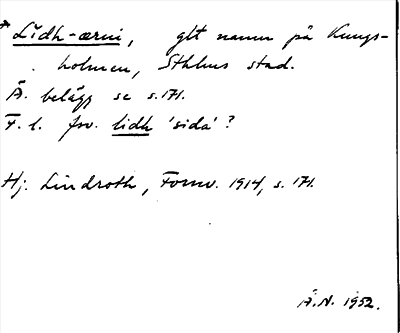 *Līdh-ærni, glt namn på Kungs-
holmen, Sthlms stad.
Ä. belägg se s. 171.
F. l. fsv. lidh 'sida'?
Hj. Lindroth, Fornv. 1914, s. 171.
Å.N. 1952.